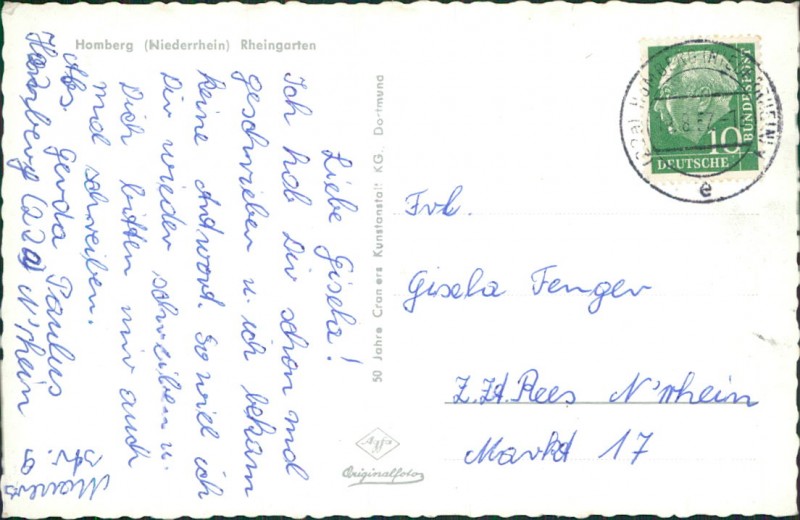 Homberg (Niederrhein) Rheingarten
Liebe Gisela!
Ich hab Dir schon mal
geschrieben u. ich bekam
keine Antwort. So will ich
Dir wieder schreiben u.
Dich bitten mir auch
mal schreiben.
Abs. Gerda Paulus
Homberg (22a) N'rhein
str. 9
50 Jahre Craners Kunstanstalt KG. Dortmund
Agfa
Originalfoto
10
DEUTSCHE
BUNDESPOST
(22a) HOMBERG (NIEDERRHEIN)
e
Frl.
Gisela Fenger
Z.Zt. Rees N'rhein
Markt 17